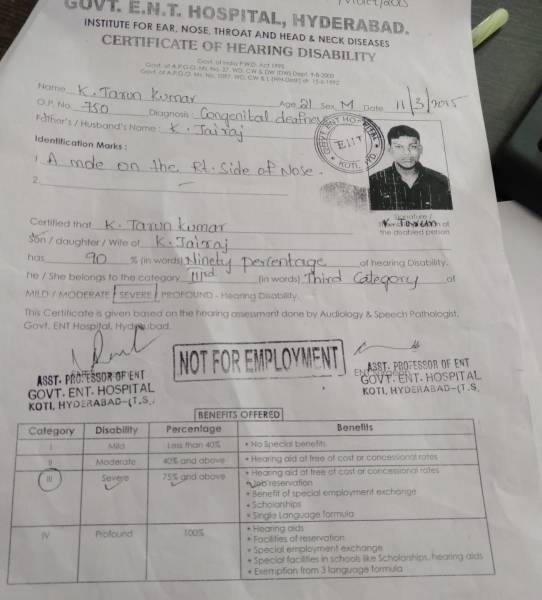 GOVT. E.N.T. HOSPITAL, HYDERABAD.
INSTITUTE FOR EAR, NOSE, THROAT AND HEAD & NECK DISEASES
CERTIFICATE OF HEARING DISABILITY
Govt. of India P.W.D. Act 1995
Name K. Tarun Kumar Age 21 Sex M Date 11/3/2015
O.P. No. 750 Diagnosis : Congenital deafness
Father's / Husband's Name : K. Jairaj
Identification Marks :
1. A mole on the Rt. side of Nose.
2. –
GOVT ENT HOSPITAL
KOTI, HYD.
Signature /
the disabled person
Certified that K. Tarun kumar
Son / daughter / Wife of K. Jairaj
has 90 % (in words) Ninety percentage of hearing Disability.
he / She belongs to the category IIIrd (in words) Third Category of
MILD / MODERATE / SEVERE / PROFOUND - Hearing Disability.
This Certificate is given based on the hearing assessment done by Audiology & Speech Pathologist,
Govt. ENT Hospital, Hyderabad.
NOT FOR EMPLOYMENT
ASST. PROFESSOR OF ENT
GOVT. ENT. HOSPITAL
KOTI, HYDERABAD-(T.S.
ASST. PROFESSOR OF ENT
GOVT. ENT. HOSPITAL
KOTI, HYDERABAD-(T.S.
BENEFITS OFFERED
Category Disability Percentage Benefits
I Mild Less than 40% • No Special benefits
II Moderate 40% and above • Hearing aid at free of cost or concessional rates
III Severe 75% and above • Hearing aid at free of cost or concessional rates
• Job reservation
• Benefit of special employment exchange
• Scholarships
• Single Language formula
IV Profound 100% • Hearing aids
• Facilities of reservation
• Special employment exchange
• Special facilities in schools like Scholarships, hearing aids
• Exemption from 3 language formula